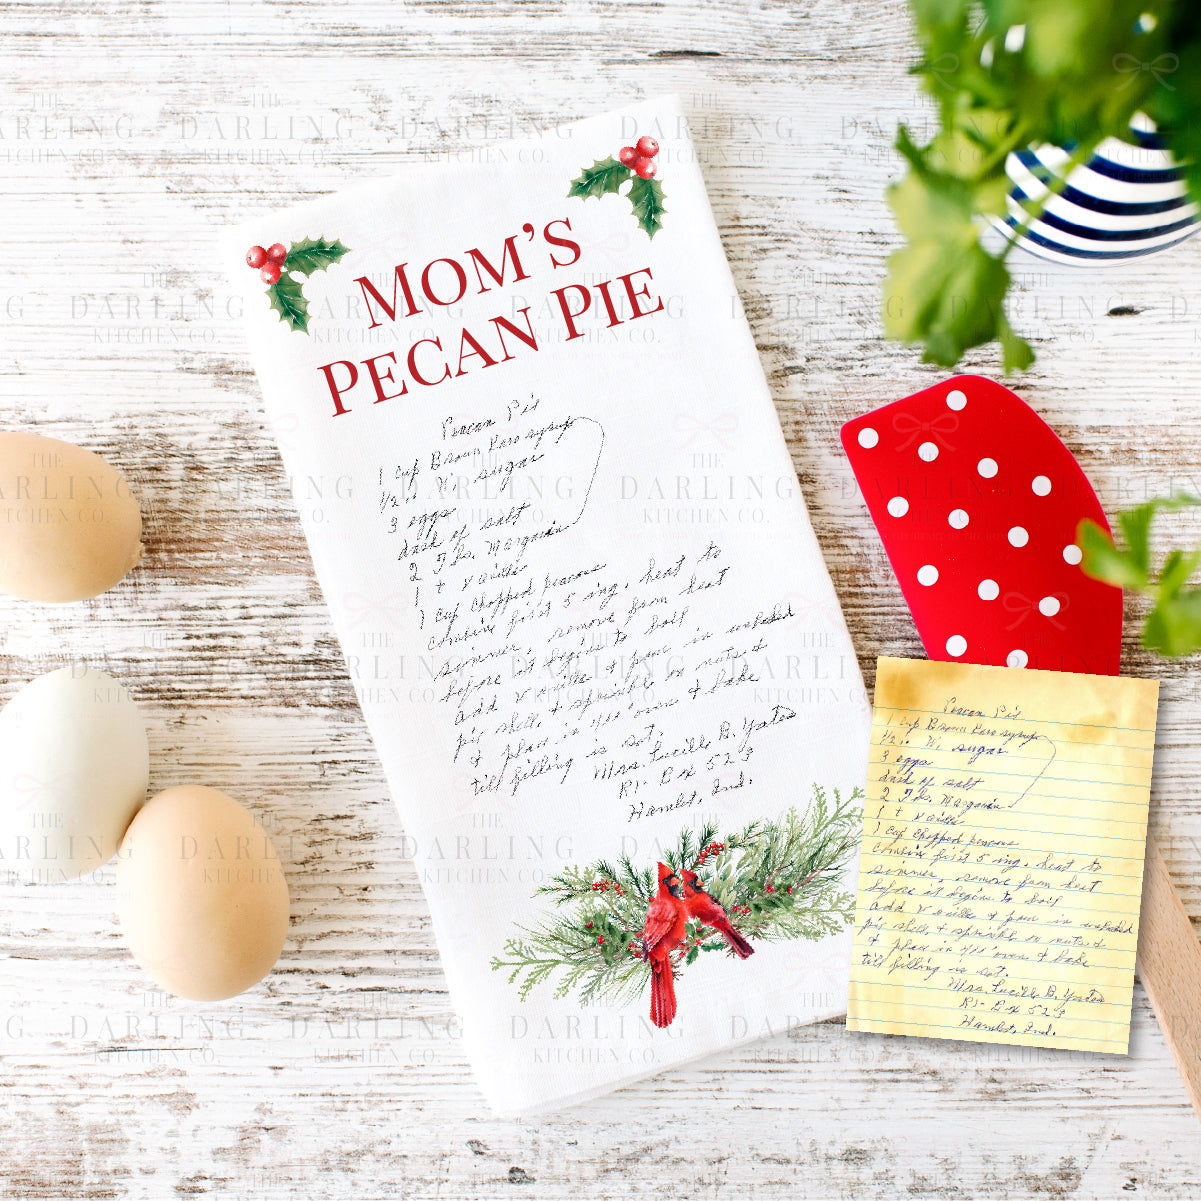 MOM'S
PECAN PIE
Pecan Pie
1 cup Brown Karo syrup
1/2 " W. sugar
3 eggs
dash of salt
2 Tbs. Margarin
1 t vanilla
1 cup chopped pecans
combine first 5 ing, heat to
simmer, remove from heat
before it begins to boil
add vanilla & pour in unbaked
pie shell, & sprinkle on nuts &
& place in 400° oven & bake
till filling is set.
Mrs. Lucille B. Yates
R1- Bx 523
Hamlet, Ind.
Pecan Pie
1 cup Brown Karo syrup
1/2 " W. sugar
3 eggs
dash of salt
2 Tbs. Margarin
1 t vanilla
1 cup chopped pecans
combine first 5 ing, heat to
simmer, remove from heat
before it begins to boil
add vanilla & pour in unbaked
pie shell, & sprinkle on nuts &
& place in 400° oven & bake
till filling is set.
Mrs. Lucille B. Yates
R1- Bx 523
Hamlet, Ind.
THE
DARLING
KITCHEN CO.